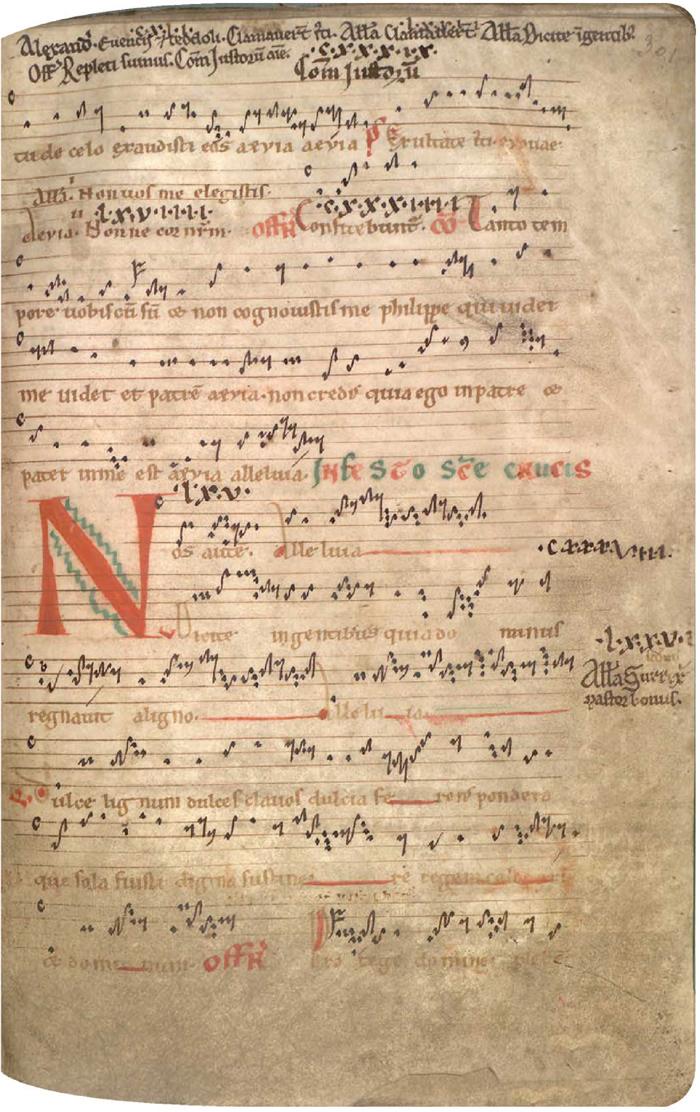 Alexandr. Euencij. Theodoli. Clamauert sci. Alla Clamauert. Alla Dicite ingentib.
Off. Repleti sumus. Com Justorū aīe. c.x.x.x.ix.
Com Justorū
tu de celo exaudisti eos aeuia aeuia Ps Exultate
alla. Non uos me elegistis.
l.x.v.i.i.i.i. c.x.x.x.i.i.i.i.
aleuia. Nonne cor nrm. offr Confitebunt. co Tanto tem
pore uobiscū sū & non cognouistis me philippe qui uidet
me uidet et patrē aeuia. non credis quia ego inpatre &
pater inme est aeuia alleluia. In festo sce crucis
l.x.v.
Nos autē. Alleluia
c.x.x.x.x.v.iii.
Dicite ingentibus quia do minus
l.x.x.v.i
regnauit aligno. alleluia.
Alla Surrex
pastor bonus.
Dulce lignum dulces clauos dulcia fe rens pondera
que sola fuisti digna sustine re regem celorum
& dominum. offr Pro tege domine plebē